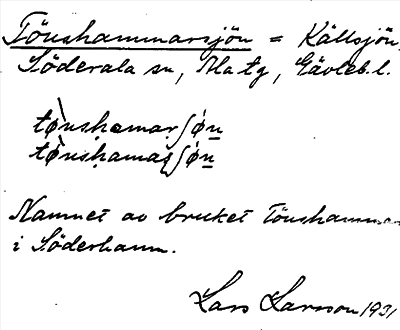 Tönshammarsjön = Källsjön,
Söderala sn, Ala tg, Gävleb. l.
tø̀nshamarʃǿn
tø̀nshamaʂʃǿn
Namnet av bruket Tönshammar
i Söderhamn.
Lars Larsson 1931